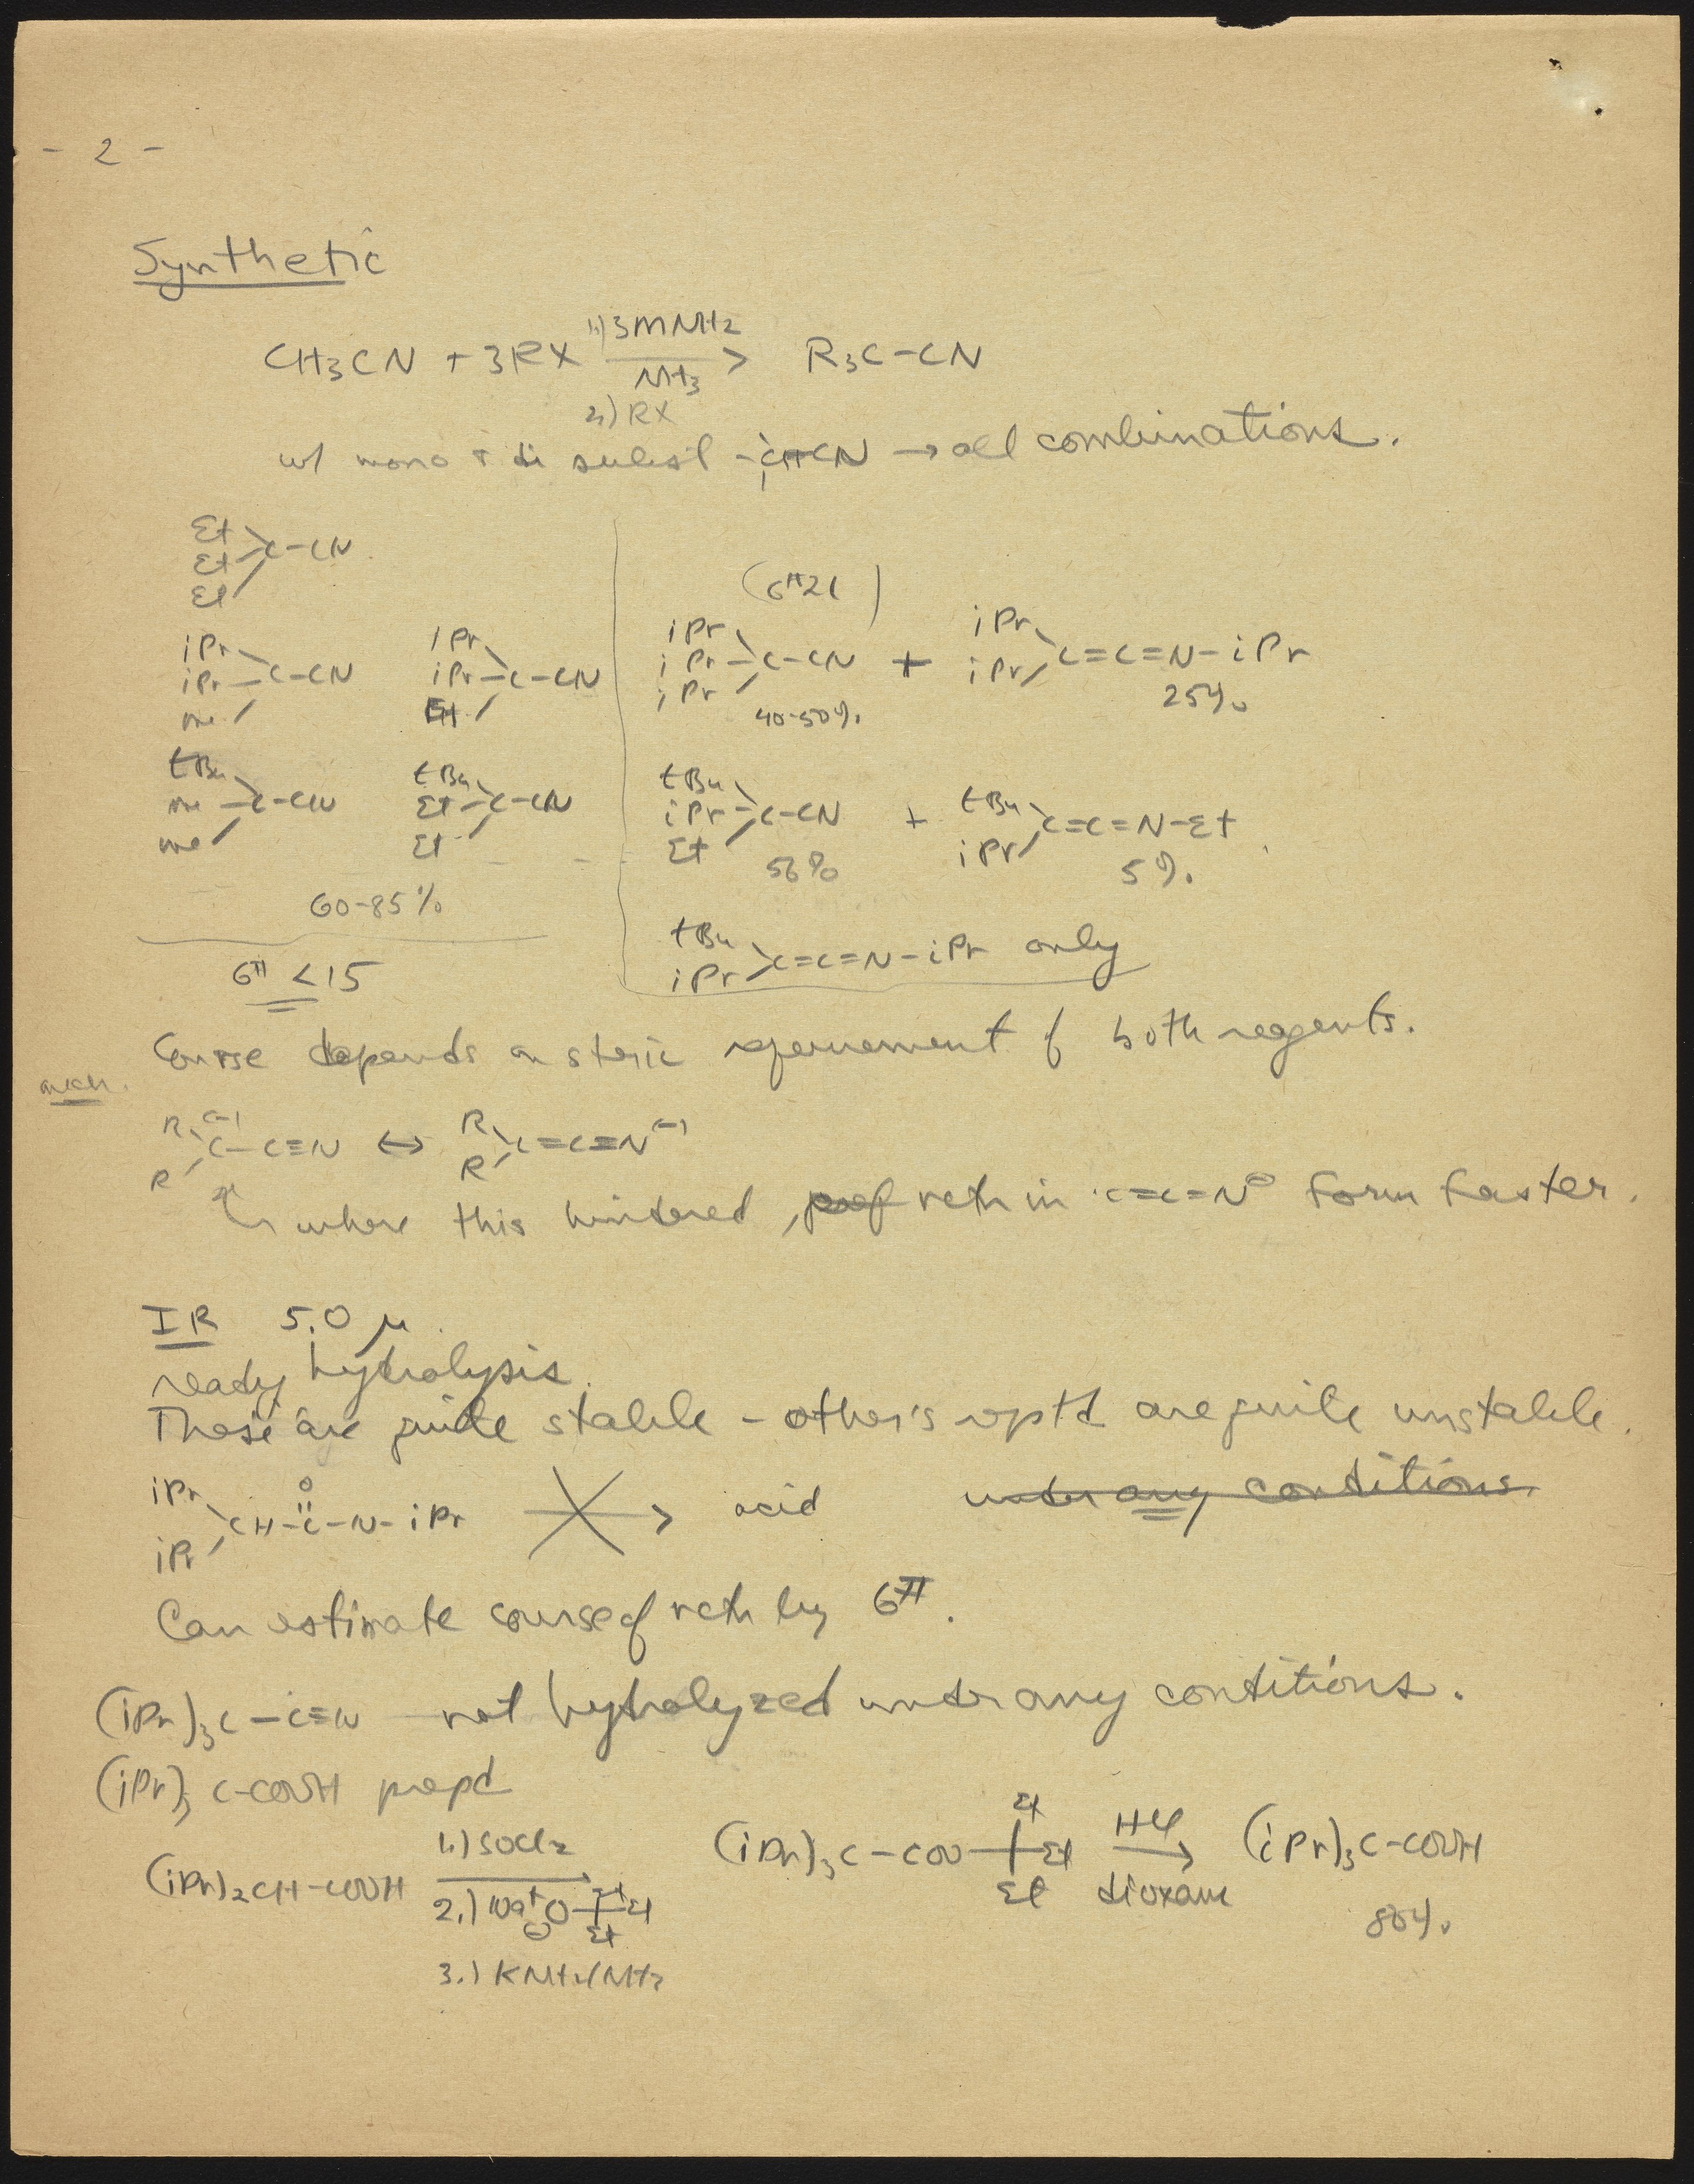 - 2 -
Synthetic
1.) 3MNH2
CH3CN + 3RX → R3C-CN
NH3
2.) RX
w/ mono & di subst -CHCN → all combinations.
Et
Et C-CN
Et
(6# 21)
iPr
iPr C-CN
me
iPr
iPr C-CN
Et
iPr
iPr C-CN
iPr
40-50%
+
iPr
iPr C=C=N-iPr
25%
tBu
me C-CN
me
tBu
Et C-CN
Et
tBu
iPr C-CN
Et
56%
+
tBu
iPr C=C=N-Et
5%
60-85%
6# < 15
tBu
iPr C=C=N-iPr only
Course depends on steric of both reagents.
mech.
R (-)
C-C≡N ↔ R C=C=N(-)
R R
where this hindered, rctn in C=C=N⊖ form faster.
IR 5.0 μ
ready hydrolysis.
These are quite stable - other's rptd are quite unstable.
iPr O
CH-C-N-iPr → acid under any conditions.
iPr
Can estimate course of rctn by 6#.
(iPr)3C-C≡N not hydrolyzed under any conditions.
(iPr)3C-COOH prepd
(iPr)2CH-COOH
1.) SOCl2
2.) Na+ ⊖O Et Et Et
3.) KNH2/NH3
(iPr)3C-COO Et Et Et
HCl
dioxane
→ (iPr)3C-COOH
80%